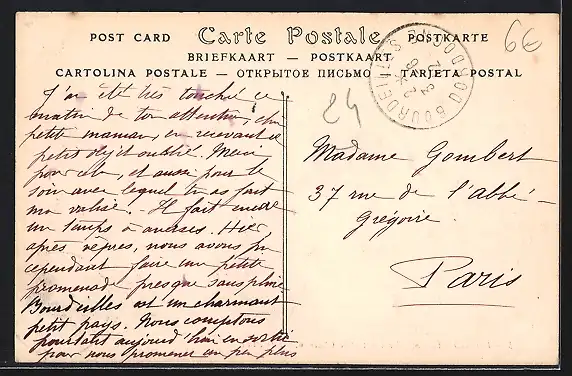 POST CARD Carte Postale POSTKARTE
BRIEFKAART — POSTKAART
CARTOLINA POSTALE — ОТКРЫТОЕ ПИСЬМО — TARJETA POSTAL
6€
24
BOURDEILLES DORDOGNE
J'ai été très touchée ce
matin de ton attention, chère
petite maman, en recevant ce
petit objet oublié. Merci
pour cela, et aussi pour le
soin avec lequel tu as fait
ma valise. Il fait encore
un temps à averses. Hier,
après vêpres, nous avons pu
cependant faire une petite
promenade presque sans pluie
Bourdeilles est un charmant
petit pays. Nous comptons
pourtant aujourd'hui en sortir
pour nous promener un peu plus
Madame Gombert
37 rue de l'abbé-
Grégoire.
Paris